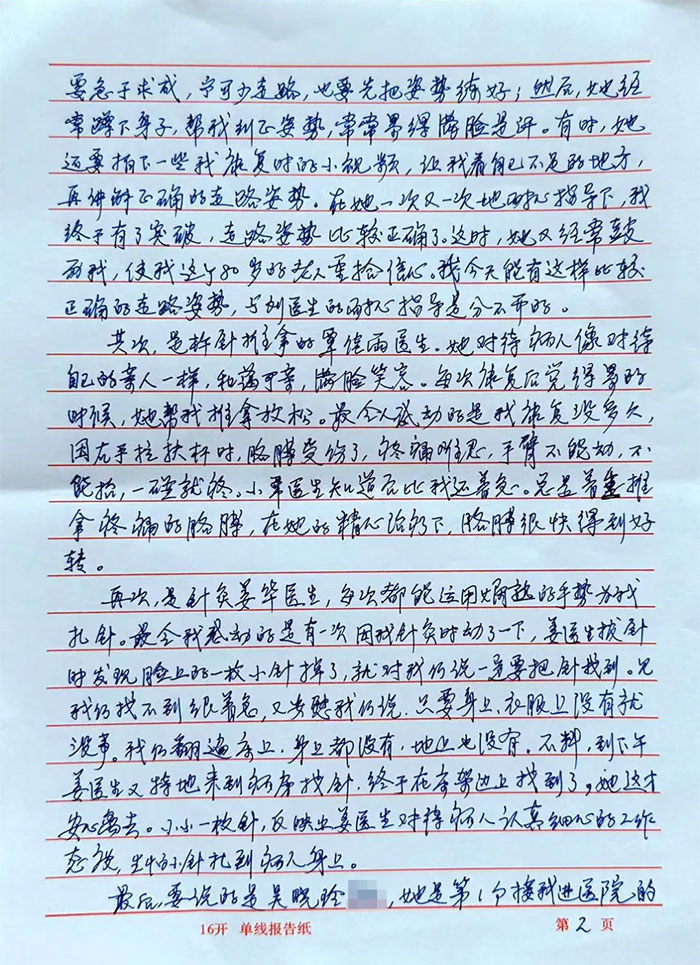 要急于求成，宁可少走路，也要先把姿势练好；然后，她经
常蹲下身子，帮我纠正姿势，常常累得满脸是汗。有时，她
还要拍下一些我康复时的小视频，让我看自己不足的地方，
再讲解正确的走路姿势。在她一次又一次地耐心指导下，我
终于有了突破，走路姿势比较正确了。这时，她又经常鼓
励我，使我这个80岁的老人重拾信心。我今天能有这样比较
正确的走路姿势，与刘医生的耐心指导是分不开的。
其次，是杵针推拿的覃佳雨医生。她对待病人像对待
自己的亲人一样，和蔼可亲，满脸笑容。每次康复后觉得累的
时候，她帮我推拿放松。最令人感动的是我康复没多久，
因右手拉扶杆时，胳膊受伤了，疼痛难忍，手臂不能动，不
能抬，一碰就疼。小覃医生知道后比我还着急。总是着重推
拿疼痛的胳膊，在她的精心治疗下，胳膊很快得到好
转。
再次，是针灸姜华医生，每次都能运用娴熟的手势为我
扎针。最令我感动的是有一次因我针灸时动了一下，姜医生拔针
时发现脸上的一枚小针掉了，就对我们说一定要把针找到。见
我们找不到很着急，又安慰我们说，只要身上、衣服上没有就
没事。我们翻遍床上、身上都没有，地上也没有。不料，到下午
姜医生又特地来到病房找针，终于在床旁边上找到了，她这才
安心离去。小小一枚针，反映出姜医生对待病人认真细心的工作
态度，生怕小针扎到病人身上。
最后，要说的是吴晓玲，她是第1个接我进医院的
16开 单线报告纸
第2页